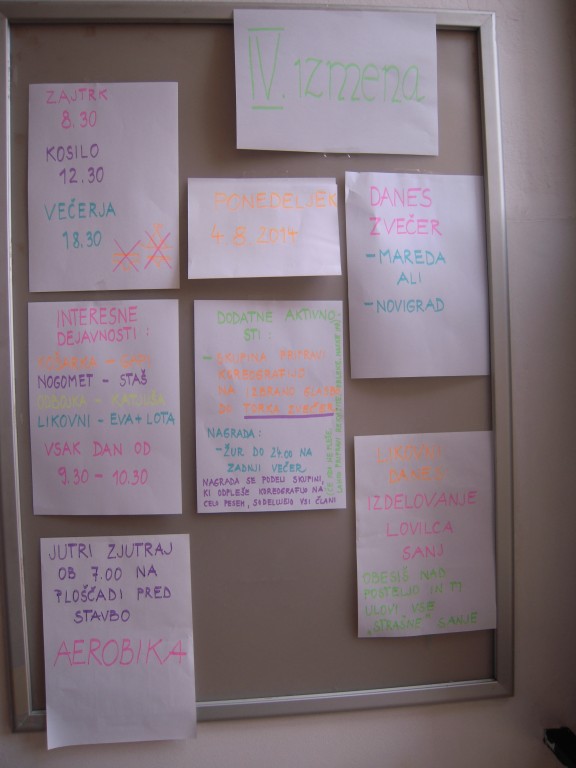 IV. izmena
ZAJTRK
8.30
KOSILO
12.30
VEČERJA
18.30
PONEDELJEK
4.8.2014
DANES
ZVEČER
- MAREDA
ALI
- NOVIGRAD
INTERESNE
DEJAVNOSTI :
NOGOMET - STAŠ
LIKOVNI - EVA + LOTA
VSAK DAN OD
9.30 - 10.30
DODATNE AKTIVNO
STI :
- SKUPINA PRIPRAVI
KOREOGRAFIJO
NA IZBRANO GLASBO
DO TORKA ZVEČER
NAGRADA :
- ŽUR DO 24.00 NA
ZADNJI VEČER
NAGRADA SE PODELI SKUPINI,
KI ODPLEŠE KOREOGRAFIJO NA
CELO PESEM, SODELUJEJO VSI ČLANI
LIKOVNI
DANES:
IZDELOVANJE
LOVILCA
SANJ
OBESIŠ NAD
POSTELJO IN TI
ULOVI VSE
„STRAŠNE" SANJE
JUTRI ZJUTRAJ
OB 7.00 NA
PLOŠČADI PRED
STAVBO
AEROBIKA